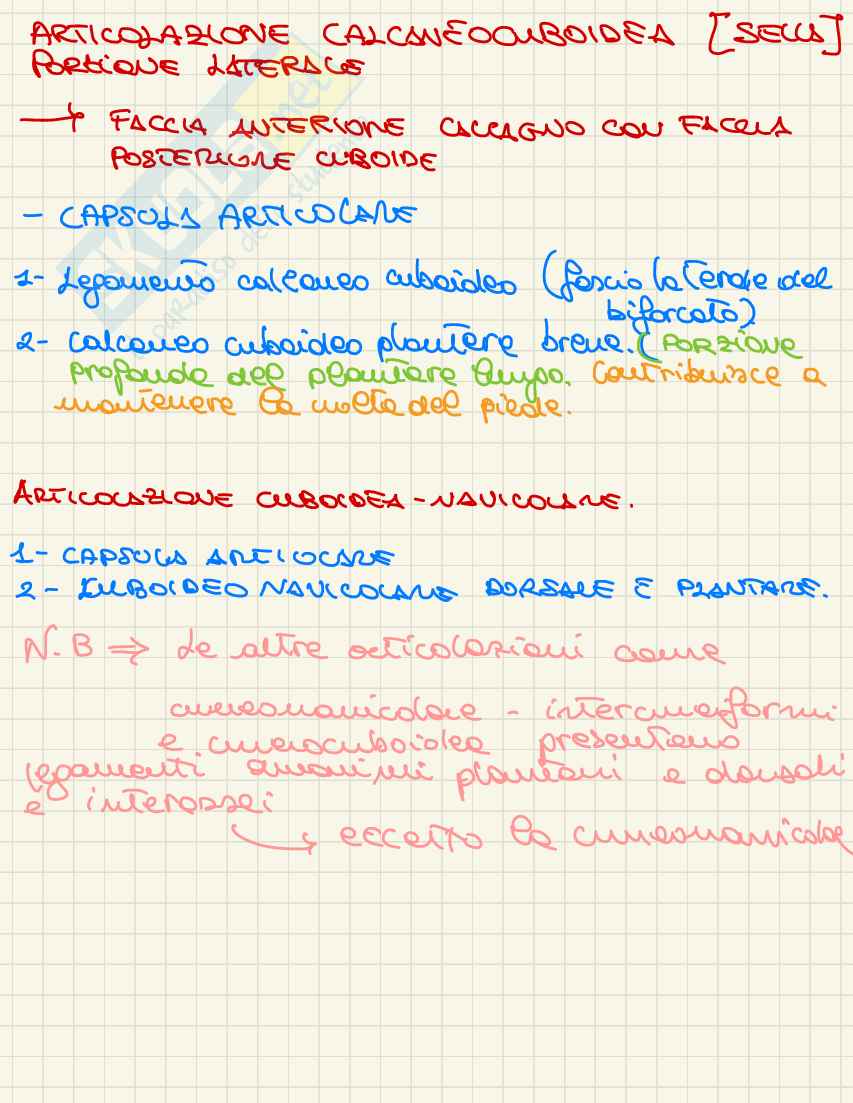 ARTICOLAZIONE CALCANEOCUBOIDEA [SELLA]
PORZIONE LATERALE
→ FACCIA ANTERIORE CALCAGNO CON FACCIA
POSTERIORE CUBOIDE
- CAPSULA ARTICOLARE
1- Legamento calcaneo cuboideo (fascio laterale del
biforcato)
2- calcaneo cuboideo plantare breve. (PORZIONE
profonda del plantare lungo. Contribuisce a
mantenere la volta del piede.
ARTICOLAZIONE CUBOIDEA-NAVICOLARE.
1- CAPSULA ARTICOLARE
2- CUBOIDEO NAVICOLARE DORSALE E PLANTARE.
N.B ⇒ Le altre articolazioni come
cuneonavicolare - intercuneiformi
e cuneocuboidea presentano
legamenti omonimi plantari e dorsali
e interossei
→ eccetto la cuneonavicolare
SKUOLA.net
paradiso dello studente